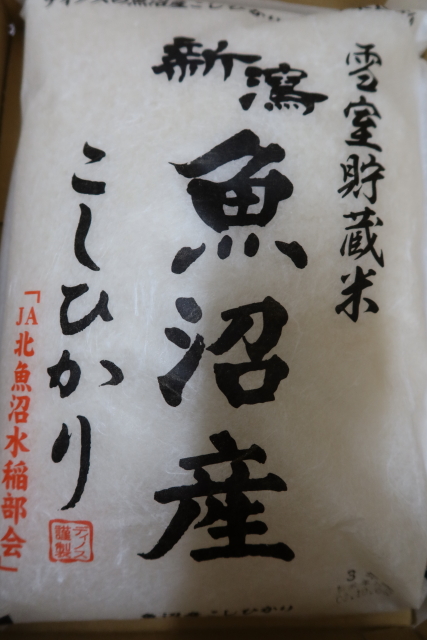 雪室貯蔵米
新潟
魚沼産
こしひかり
「JA北魚沼水稲部会」
ディノス
謹製